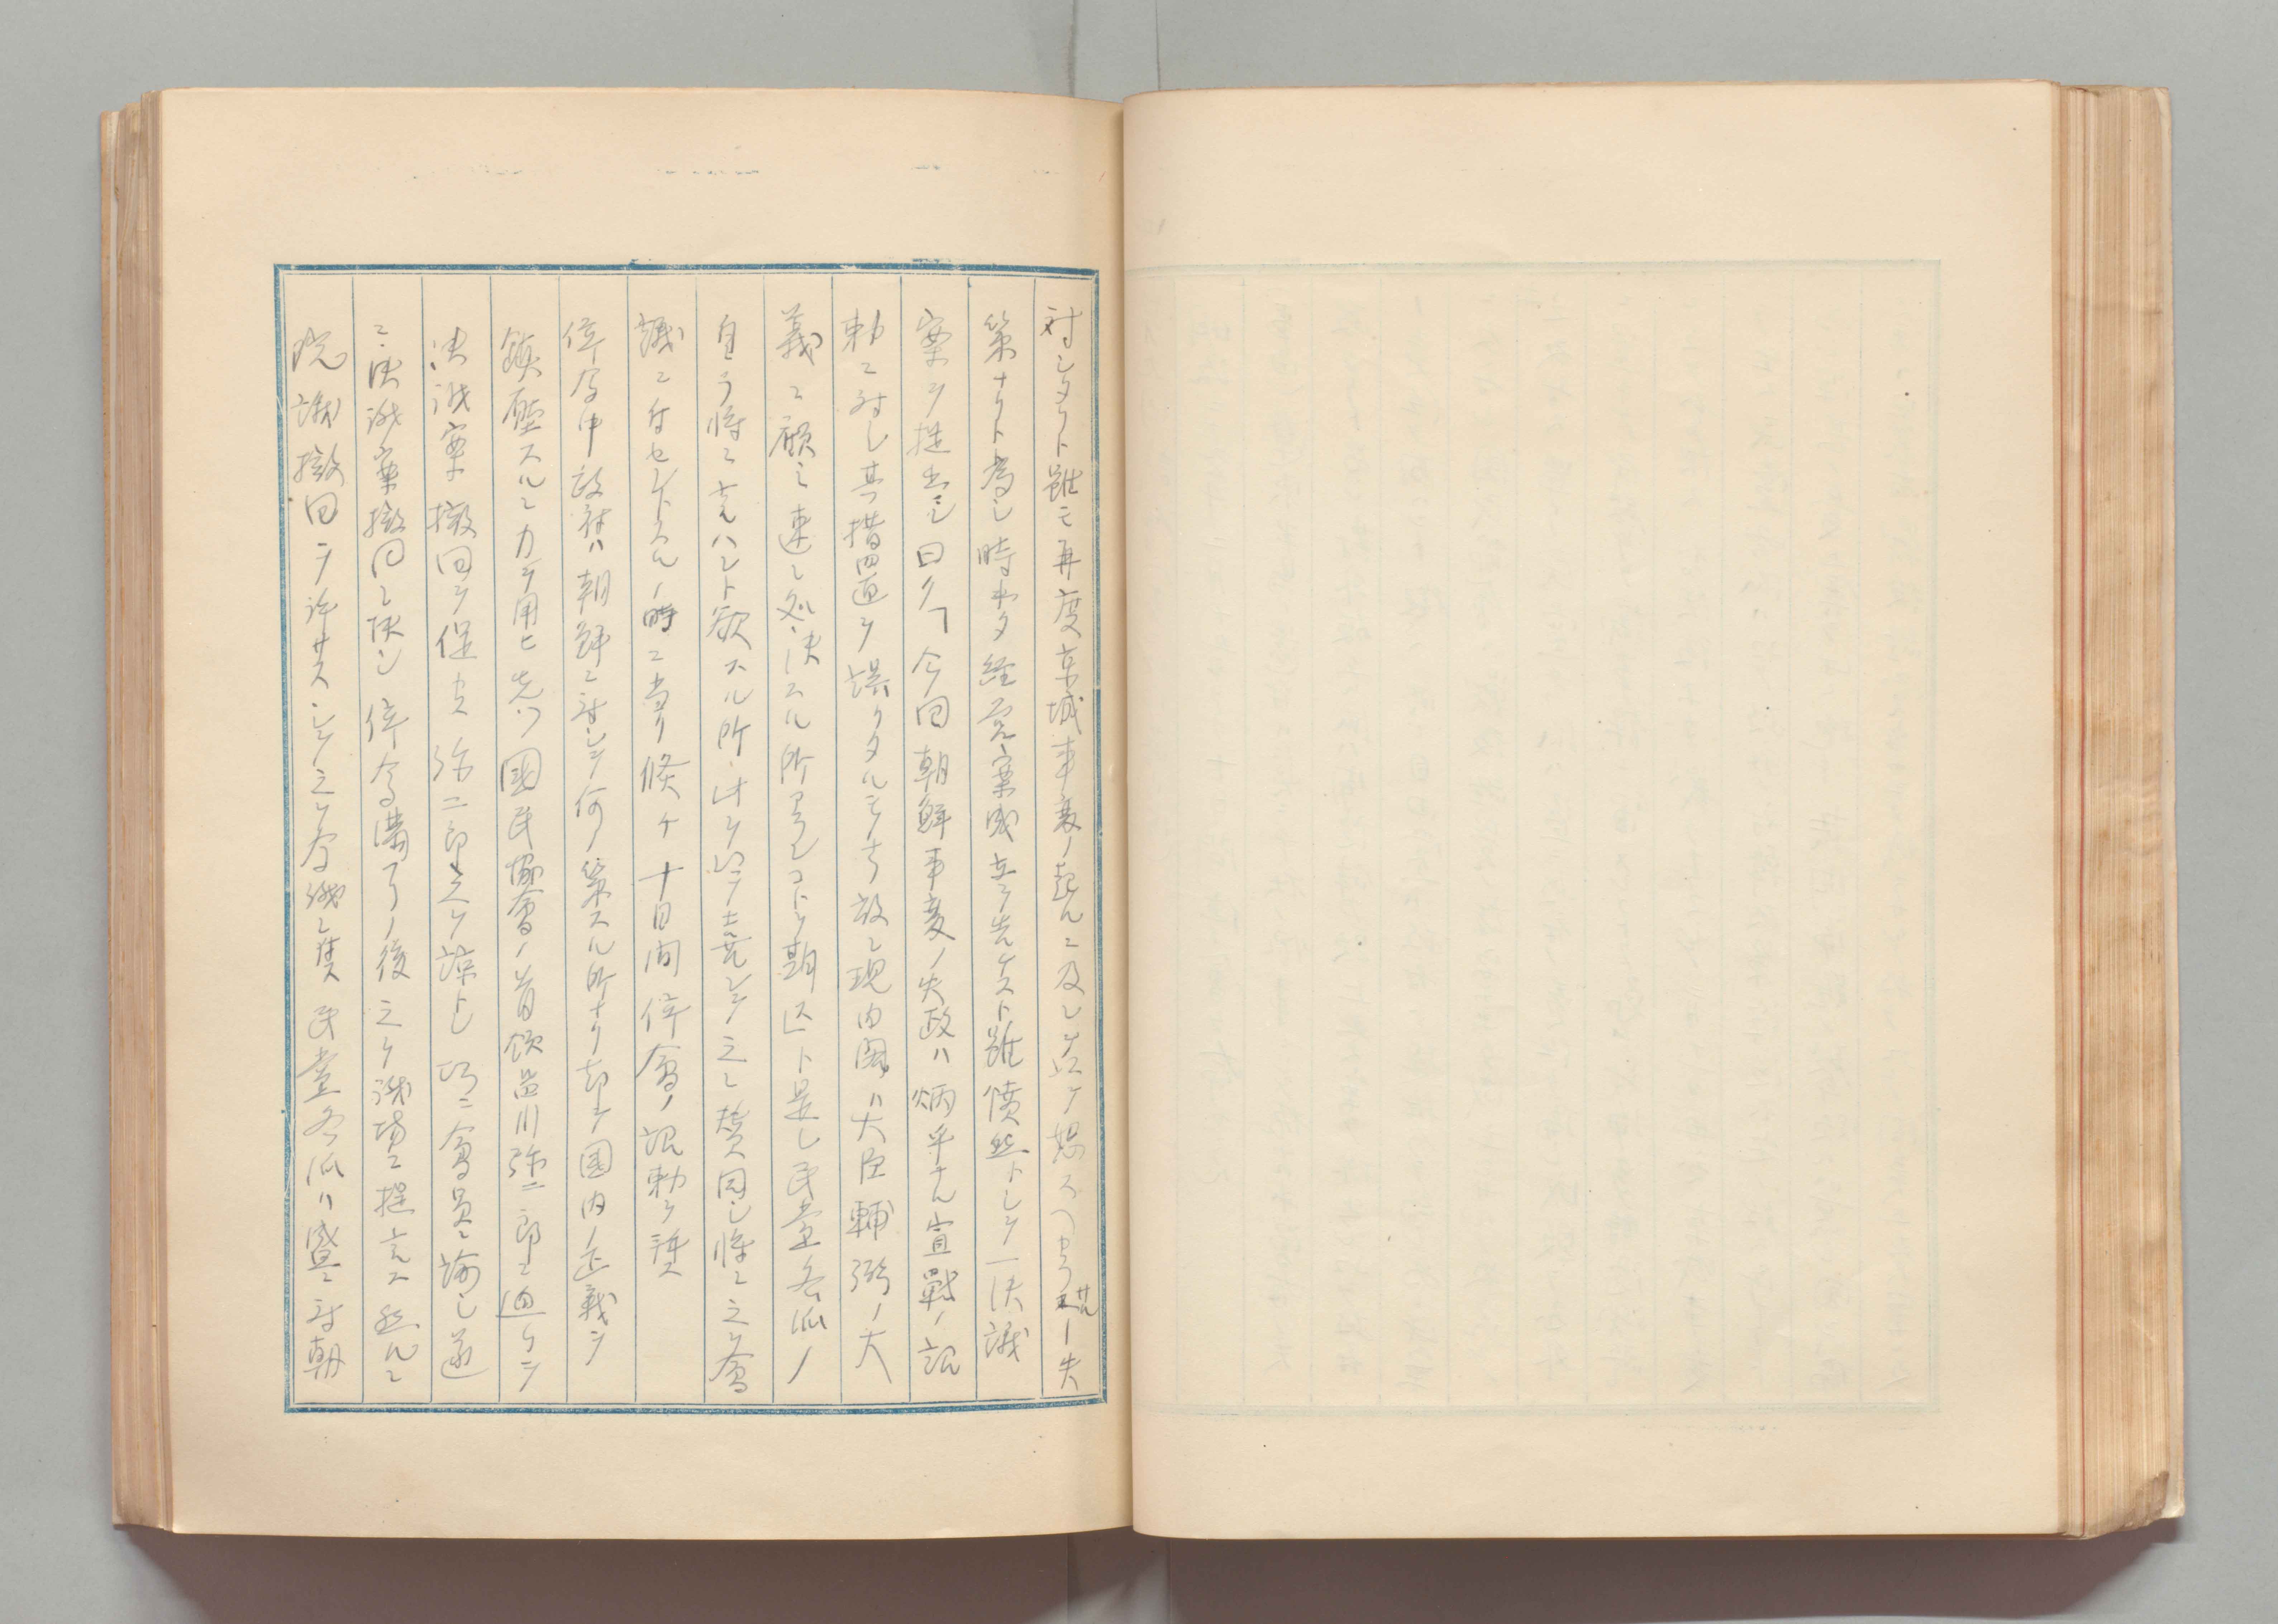 対シタリト雖モ再度京城事変ノ起ルニ及ビ共ニ恕スヘカラサルノ失
策ナリト為シ時ホタ経党案成立ヲ告ケスト雖憤然トシテ一決議
案ヲ提出シ曰ク「今回朝鮮事変ノ失政ハ炳乎タル宣戦ノ詔
勅ニ対シ其措置ヲ誤リタルモノナリ故ニ現内閣ハ大臣輔弼ノ大
義ニ顧ミ速ニ処決スル所アランコトヲ期ス」ト是レ民党各派ノ
自ラ将ニ言ハント欲スル所
議ニ付セントスルノ時ニ当リ倏チ十日間停会ノ詔勅ヲ拝ス
停会中政府ハ朝鮮ニ対シテ何ノ策スル所ナク却テ国内ノ正義ヲ
鎮圧スルニ力ヲ用ヒ先ツ國民協會ノ首領品川弥二郎ニ迫リテ
決議案撤回ヲ促ス弥二郎之ヲ諒トシ巧ニ会員ニ諭シ遂
ニ決議案撤回ニ決シ停会満了ノ後之ヲ議場ニ提言ス然ルニ
院議撤回ヲ許サスシテ之ヲ否決ス民党各派ハ盛ニ対朝